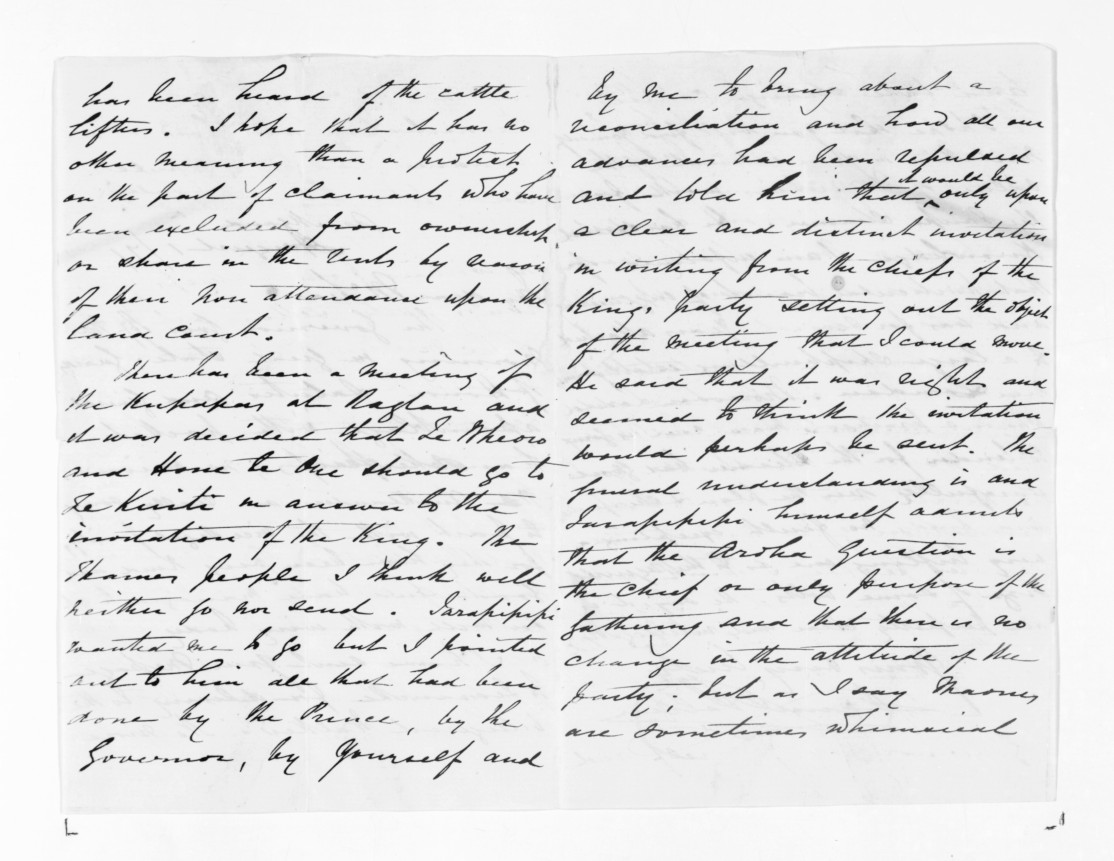 has been heard of the cattle
lifters. I hope that it has no
other meaning than a protest
on the part of claimants who have
been excluded from ownership
or share in the rents by reason
of their non attendance upon the
land court.
There has been a meeting of
the Kupapas at Raglan and
it was decided that Te Wheoro
and Hone te One should go to
Te Kuiti in answer to the
invitation of the King. The
Thames people I think will
neither go nor send. Tarapipipi
wanted me to go but I pointed
out to him all that had been
done by the Prince, by the
Governor, by Yourself and
by me to bring about a
reconciliation and how all our
advances had been repulsed
and told him that it would be only upon
a clear and distinct invitation
in writing from the chiefs of the
Kings party setting out the object
of the meeting that I could move.
He said that it was right and
seemed to think the invitation
would perhaps be sent. The
general understanding is and
Tarapipipi himself admits
that the Aroha Question is
the chief or only purpose of the
gathering and that there is no
change in the attitude of the
party; but as I say Maories
are sometimes whimsical